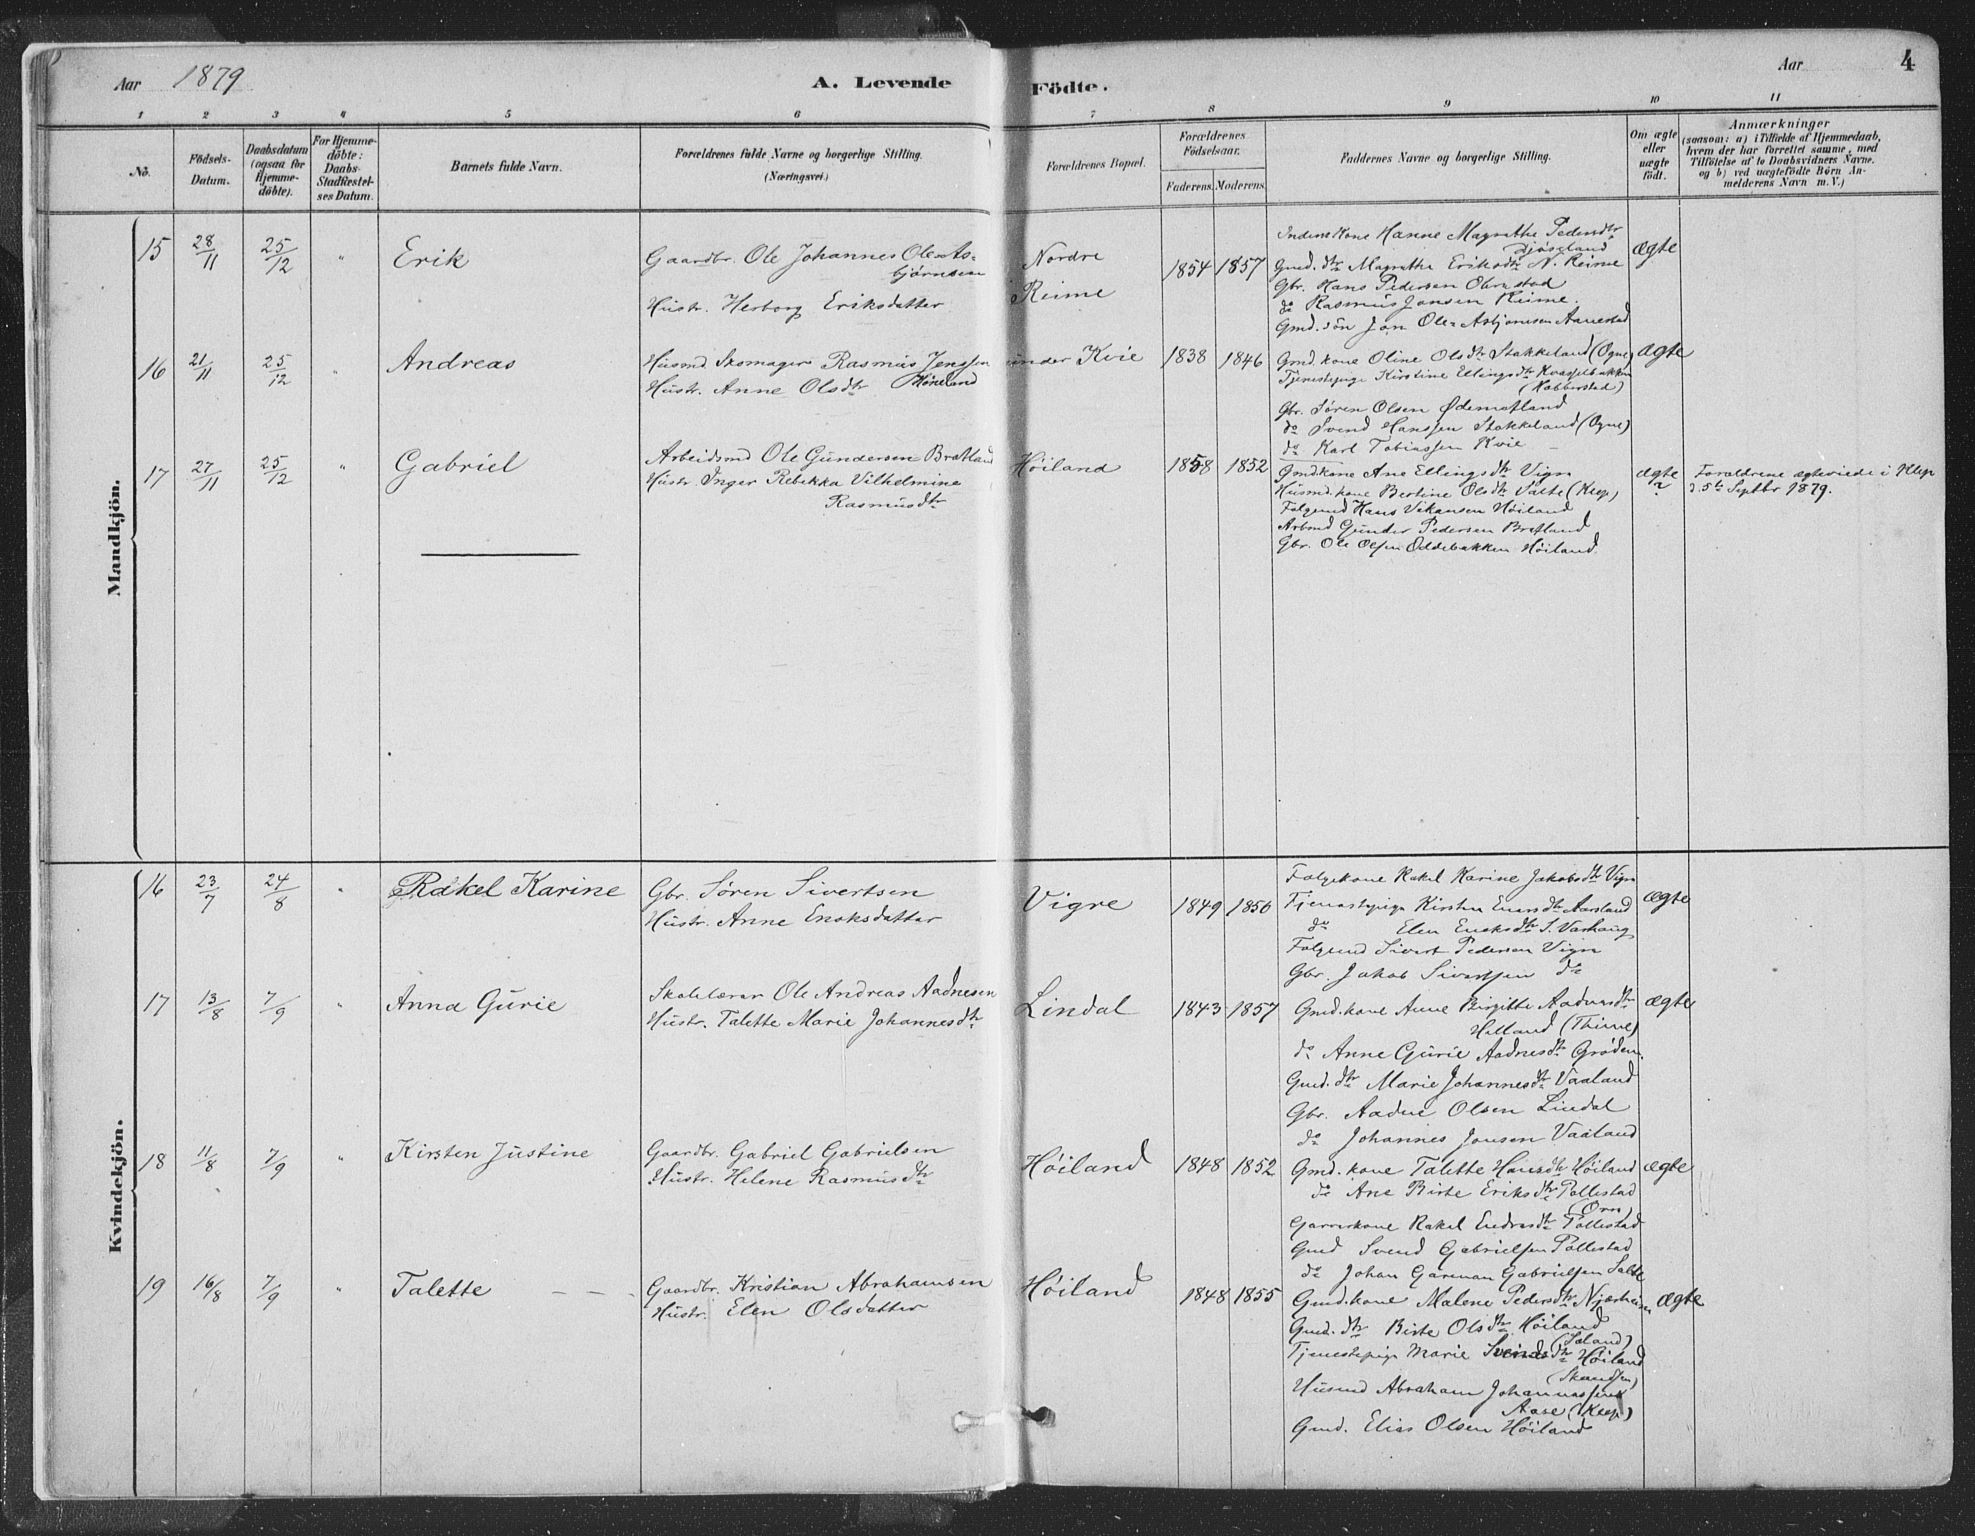 Aar 1879
A. Levende Födte.
Aar 4
1 2 3 4 5 6 7 8 9 10 11
No.
Födsels-Datum.
Daabsdatum (ogsaa for Hjemme-döbte).
For Hjemme-döbte: Daabs-Stadfæstel-ses Datum.
Barnets fulde Navn.
Forældrenes fulde Navne og borgerlige Stilling.
(Næringsvei.)
Forældrenes Bopæl.
Forældrenes Födselsaar.
Faderens. Moderens.
Faddernes Navne og borgerlige Stilling.
Om ægte eller uægte födt.
Anmærkninger
(saasom: a) i Tilfælde af Hjemmedaab,
hvem der har forrettet samme, med
Tilföielse af to Daabsvidners Navne.
og b) ved uægtefödte Börn An-
melderens Navn m. V.)
Mandkjön.
15 28/11 25/12 " Erik
Gaardbr. Ole Johannes Ole=As=
bjørnsen
Hustr. Herborg Eriksdatter
Nordre
Reime
1854 1857
Kone Hanne Magrathe Pedersdtr
Gmd. dtr Magrathe Eriksdtr N. Reime
Gbr. Hans Pedersen Obrestad
do Rasmus Jansen Reime.
Gmd. søn Jon Ole=Asbjørnsen Aanestad
ægte
16 21/11 25/12 " Andreas
Husmd Skomager Rasmus Jenssen
Hustr. Anne Olsdtr Høneland
under Kvie
1838 1846
Gmd. kone Oline Olsdtr Stokkeland (Ogne)
Tjenestepige Kirstine Ellingsdtr Kvasselbakken
(Nobberstad)
Gbr. Søren Olsen Ødemotland
do Svend Hanssen Stokkeland (Ogne)
do Karl Tobiassen Kvie
ægte
17 27/11 25/12 " Gabriel
Arbeidsmd Ole Gundersen Bratland
Hustr. Inger Rebekka Vilhelmine
Rasmusdtr
Høiland
1858 1852
Gmd.kone Ane Ellingsdtr Vigre
Husmd. kone Bertine Olsdtr Salte (Klep)
Følgemd Hans Vikansen Høiland
Arbmd Gunder Pedersen Bratland
Gbr. Ole Olsen Oddebakken Høiland.
ægte
Forældrene ægteviede i Klep
d. 5te Septbr 1879.
Kvindekjön.
16 23/7 24/8 " Rakel Karine
Gbr. Søren Sivertsen
Hustr. Anne Enoksdatter
Vigre
1849 1850
Følgekone Rakel Karine Jakobsdtr Vigre
Tjenestepige Kirsten Enersdtr Aarsland
do Elen Enoksdtr S. Varhaug
Følgemd Sivert Pedersen Vigre
Gbr. Jakob Sivertsen do
ægte
17 13/8 7/9 " Anna Gurie
Skolelærer Ole Andreas Aadnesen
Hustr. Talette Marie Johannesdtr
Lindal
1843 1857
Gmd. kone Anne Birgitte Aadnesdtr
Helland (Thime)
do Anne Gurie Aadnesdtr Grøden.
Gmd. dtr Marie Johannesdtr Vaaland
Gbr. Aadne Olsen Lindal
do Johannes Jonsen Vaaland
ægte
18 11/8 7/9 " Kirsten Justine
Gaardbr. Gabriel Gabrielsen
Hustr. Helene Rasmusdtr
Høiland
1848 1852
Gmd. kone Talette Hansdtr Høiland
do Ane Birte Eriksdtr Pollestad
(Orre)
Garverkone Rakel Endresdtr Pollestad
Gmd Svend Gabrielsen Pollestad
do Johan Garman Gabrielsen Salte
ægte
19 16/8 7/9 " Talette – – -
Gaardbr. Kristian Abrahamsen
Hustr. Elen Olsdatter
Høiland
1848 1855
Gmd.kone Malene Pedersdtr Njærheim
Gmd. dtr Birte Olsdtr Høiland
Tjenestepige Marie Svendsdtr Høiland
Husmd Abraham Johannessen
Aase (Klep)
Gmd. Elias Olsen Høiland
ægte